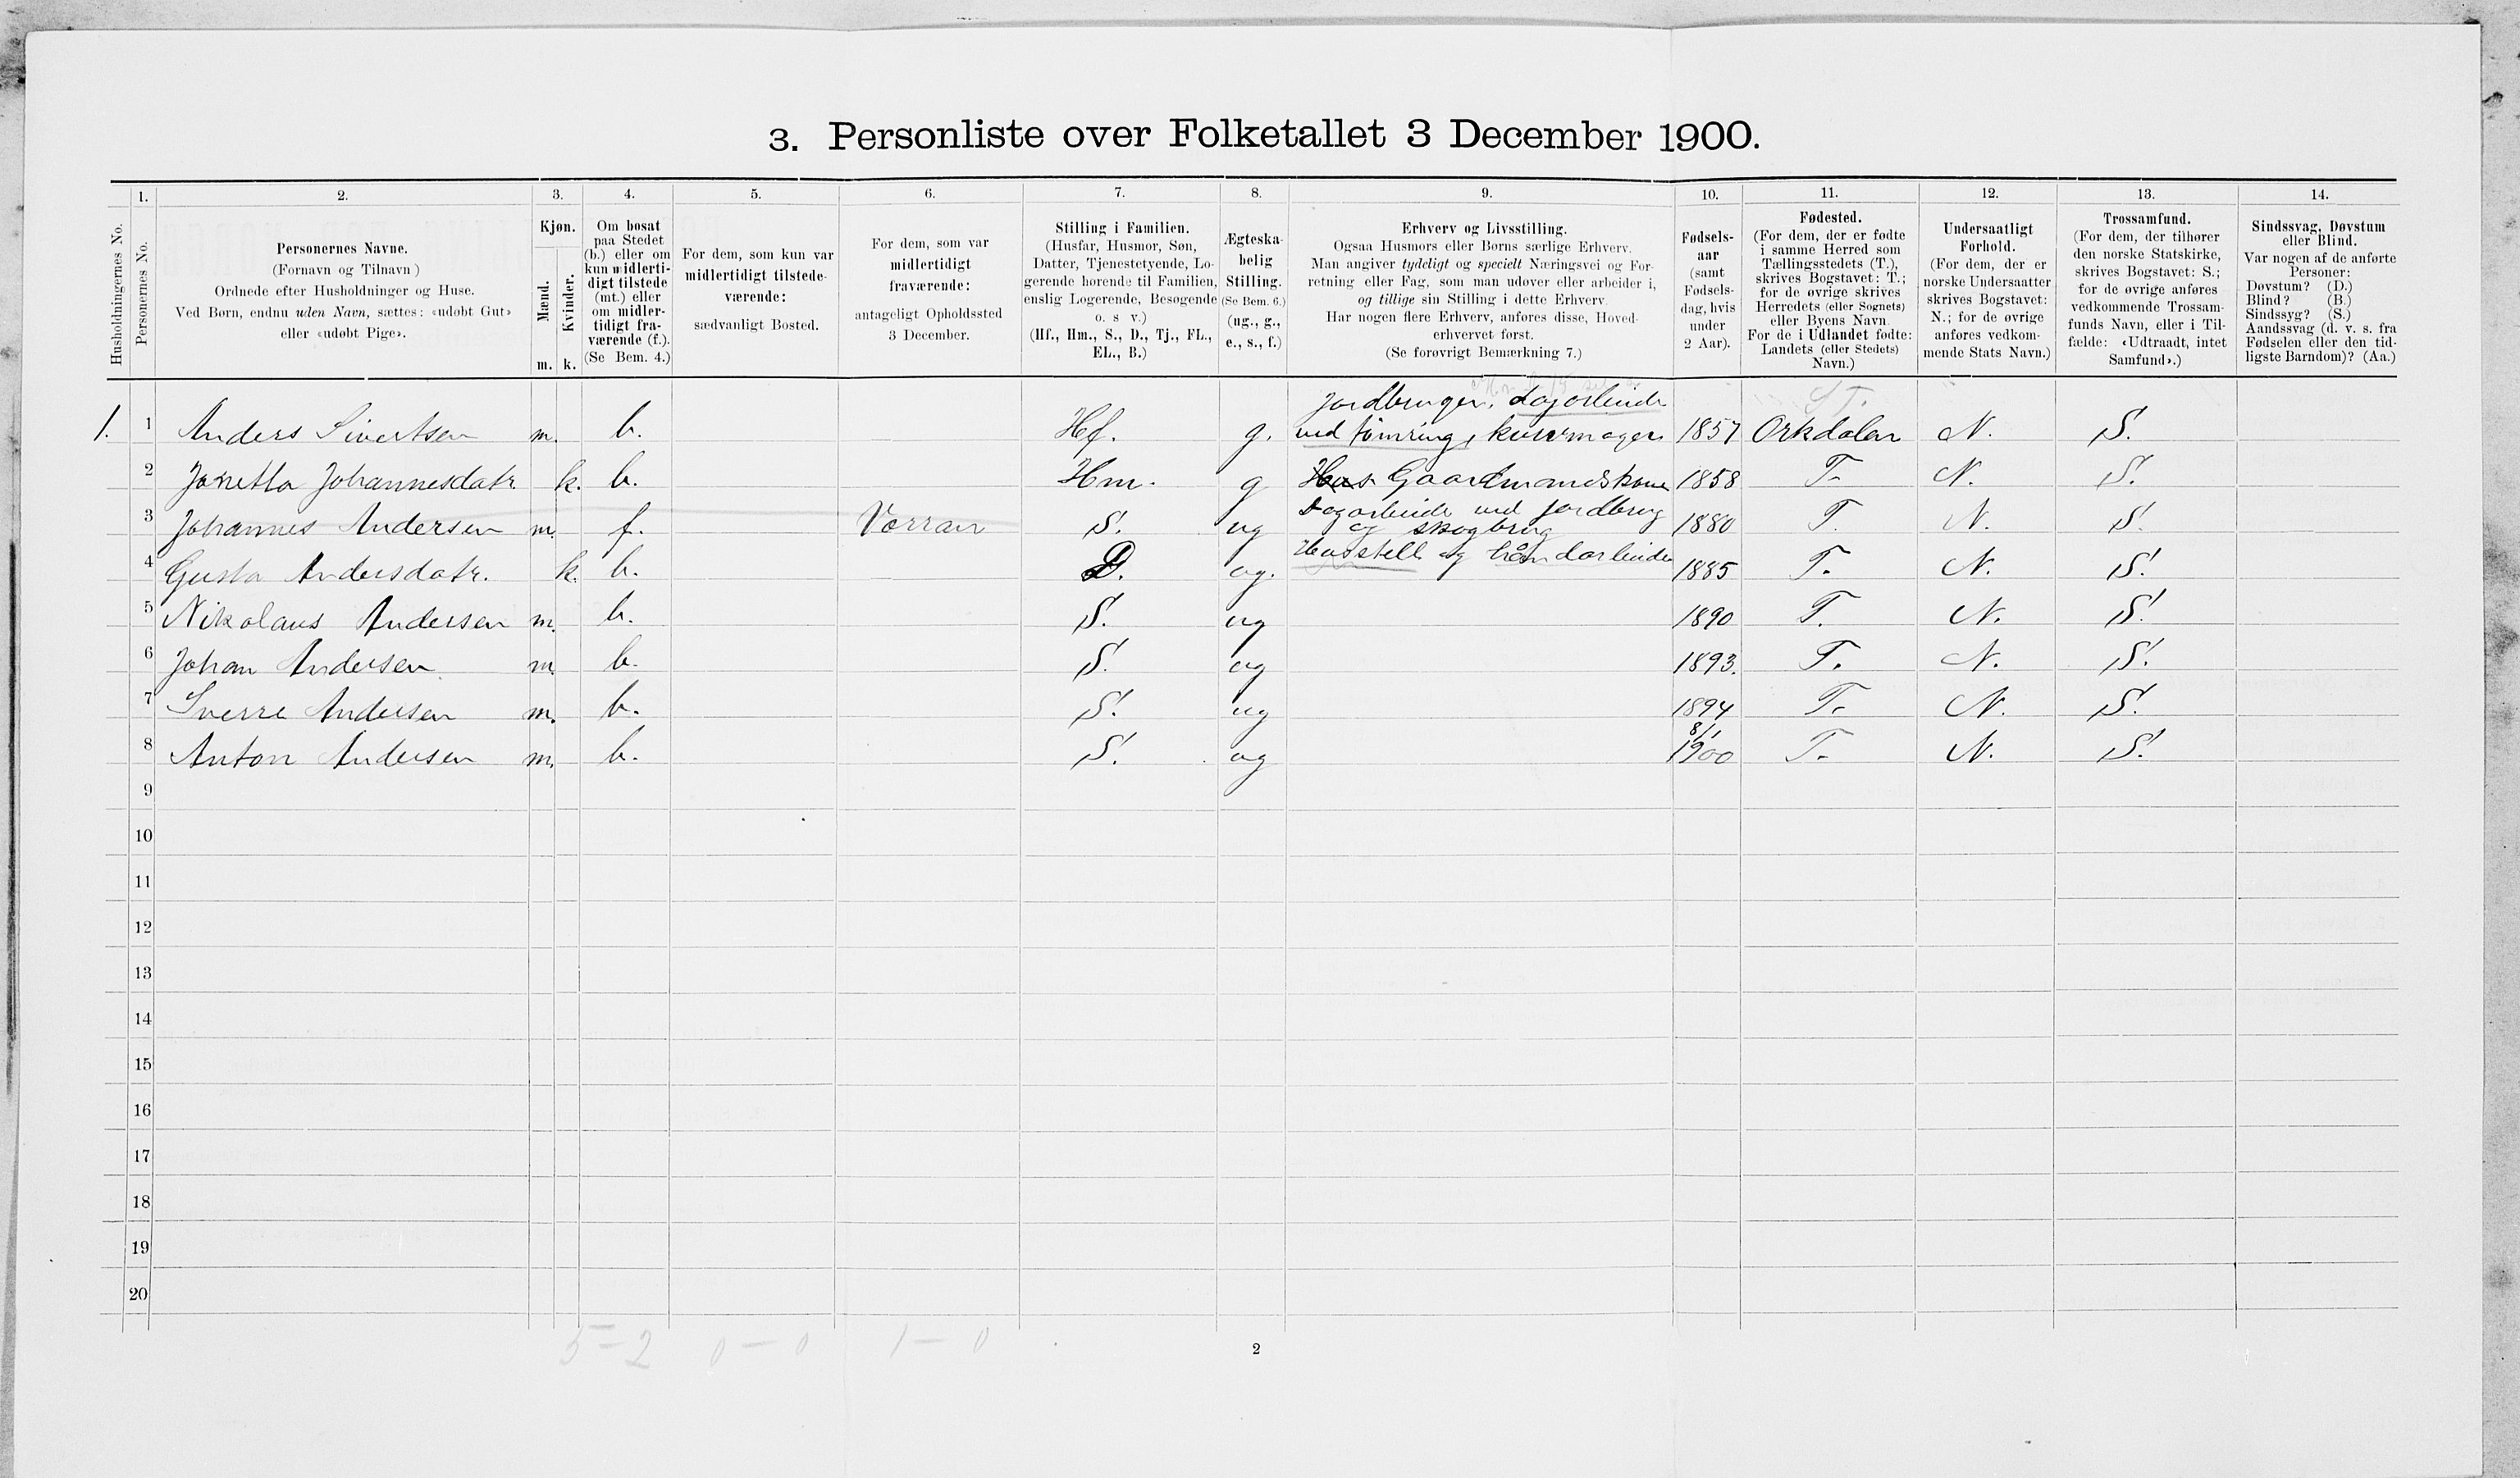 3. Personliste over Folketallet 3 December 1900.
1. 2. 3. 4. 5. 6. 7. 8. 9. 10. 11. 12. 13. 14.
Husholdningernes No.
Personernes No.
Personernes Navne.
(Fornavn og Tilnavn)
Ordnede efter Husholdninger og Huse.
Ved Børn, endnu uden Navn, sættes: «udøbt Gut»
eller «udøbt Pige».
Kjøn.
Mænd.
Kvinder.
m. k.
Om bosat
paa Stedet
(b.) eller om
kun midlerti-
digt tilstede
(mt.) eller
om midler-
tidigt fra-
værende (f.).
(Se Bem. 4.)
For dem, som kun var
midlertidigt tilstede-
værende:
sædvanligt Bosted.
For dem, som var
midlertidigt
fraværende:
antageligt Opholdssted
3 December.
Stilling i Familien.
(Husfar, Husmor, Søn,
Datter, Tjenestetyende, Lo-
gerende hørende til Familien,
enslig Logerende, Besøgende
o. s v.)
(Hf., Hm., S., D., Tj., FL.,
EL., B.)
Ægteska-
belig
Stilling.
(Se Bem. 6.)
(ug., g.,
e., s., f.)
Erhverv og Livsstilling.
Ogsaa Husmors eller Børns særlige Erhverv.
Man angiver tydeligt og specielt Næringsvei og For-
retning eller Fag, som man udøver eller arbeider i,
og tillige sin Stilling i dette Erhverv.
Har nogen flere Erhverv, anføres disse, Hoved-
erhvervet først.
(Se forøvrigt Bemærkning 7.)
Fødsels-
aar
(samt
Fødsels-
dag, hvis
under
2 Aar).
Fødested.
(For dem, der er fødte
i samme Herred som
Tællingsstedets (T.),
skrives Bogstavet: T.;
for de øvrige skrives
Herredets (eller Sognets)
eller Byens Navn.
For de i Udlandet fødte:
Landets (eller Stedets)
Navn.)
Undersaatligt
Forhold.
(For dem, der er
norske Undersaatter
skrives Bogstavet:
N.; for de øvrige
anføres vedkom-
mende Stats Navn.)
Trossamfund.
(For dem, der tilhører
den norske Statskirke,
skrives Bogstavet: S.;
for de øvrige anføres
vedkommende Trossam-
funds Navn, eller i Til-
fælde: «Udtraadt, intet
Samfund».)
Sindssvag, Døvstum
eller Blind.
Var nogen af de anførte
Personer:
Døvstum? (D.)
Blind? (B.)
Sindssyg? (S.)
Aandssvag (d. v. s. fra
Fødselen eller den tid-
ligste Barndom)? (Aa.)
Jordbruger, dagarbeide
1. 1 Anders Sivertsen m. b. Hf. g. ved tømring, kurvmager 1857 Orkdalen N. S.
2 Jonetta Johannesdatr. k. b. Hm. g Gaardmandskone 1858 T. N. S.
Dagarbeide ved jordbrug
3 Johannes Andersen m. f. Værran S. ug og skogbrug 1880 T. N. S.
Husstell og håndarbeide
4 Gusta Andersdatr. k. b. D. ug. 1885 T. N. S.
5 Nikolaus Andersen m. b. S. ug 1890 T. N. S.
6 Johan Andersen m. b. S. ug 1893. T. N. S.
7 Sverre Andersen m. b. S. ug 1894 T. N. S.
8/1
8 Anton Andersen m. b. S. ug 1900 T. N. S.
9
10
11
12
13
14
15
16
17
18
19
20
5 - 2 0 - 0 1 - 0
2